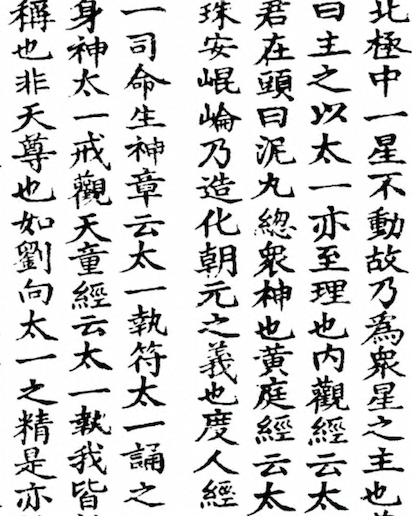 北極中一星不動故乃為衆星之主也
曰主之以太一亦至理也内觀經云太
君在頭曰泥丸緫衆神也黄庭經云太
珠安崐崘乃造化朝元之義也度人經
一司命生神章云太一執符太一誦之
身神太一戒觀天童經云太一執我皆
稱也非天尊也如劉向太一之精是亦